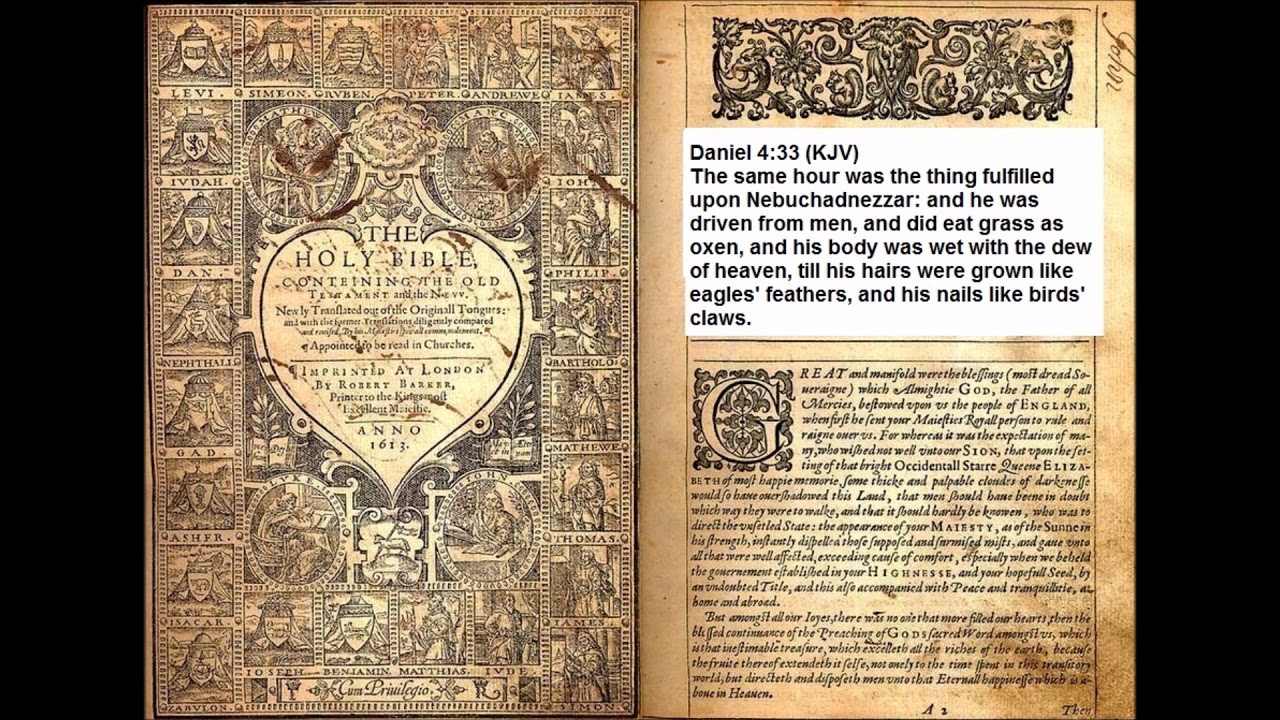 LEVI.
SIMEON.
RVBEN.
PETER.
ANDREWE
IAMES.
MATHE
MARC
IVDAH.
IOHN
DAN.
PHILIP.
NEPHTHALI
BARTHOLO:
GAD.
MATHEWE
ASHER.
THOMAS.
ISACAR.
IAMES
LVKE
IOHN
IOSEPH.
BENIAMIN.
MATTHIAS.
IVDE
ZABVLON.
SIMON.
THE
HOLY BIBLE,
CONTEINING THE OLD
TESTAMENT and the NEVV.
Newly Translated out of the Originall Tongues:
and with the former Translations diligently compared
and reuised, By his Maiesties speciall commandement.
¶ Appointed to be read in Churches.
¶ IMPRINTED AT LONDON
BY ROBERT BARKER,
Printer to the Kings most
Excellent Maiestie.
ANNO
1613.
Cum Priuilegio.
John
Daniel 4:33 (KJV)
The same hour was the thing fulfilled
upon Nebuchadnezzar: and he was
driven from men, and did eat grass as
oxen, and his body was wet with the dew
of heaven, till his hairs were grown like
eagles' feathers, and his nails like birds'
claws.
GREAT and manifold were the blessings (most dread So-
ueraigne) which Almightie GOD, the Father of all
Mercies, bestowed vpon vs the people of ENGLAND,
when first he sent your Maiesties Royall person to rule and
raigne ouer vs. For whereas it was the expectation of ma-
ny, who wished not well vnto our SION, that vpon the set-
ting of that bright Occidentall Starre Queene ELIZA-
BETH of most happie memorie, some thicke and palpable cloudes of darkenesse
would so haue ouershadowed this Land, that men should haue beene in doubt
which way they were to walke, and that it should hardly be knowen, who was to
direct the vnsetled State: the appearance of your MAIESTY, as of the Sunne in
his strength, instantly dispelled those supposed and surmised mists, and gaue vnto
all that were well affected, exceeding cause of comfort, especially when we beheld
the gouernement established in your HIGHNESSE, and your hopefull Seed, by
an vndoubted Title, and this also accompanied with Peace and tranquillitie, at
home and abroad.
But amongst all our Ioyes, there was no one that more filled our hearts, then the
blessed continuance of the Preaching of GODS sacred Word amongst vs, which
is that inestimable treasure, which excelleth all the riches of the earth, because
the fruite thereof extendeth it selfe, not onely to the time spent in this transitory
world, but directeth and disposeth men vnto that Eternall happinesse which is a-
boue in Heauen.
A 2
Then